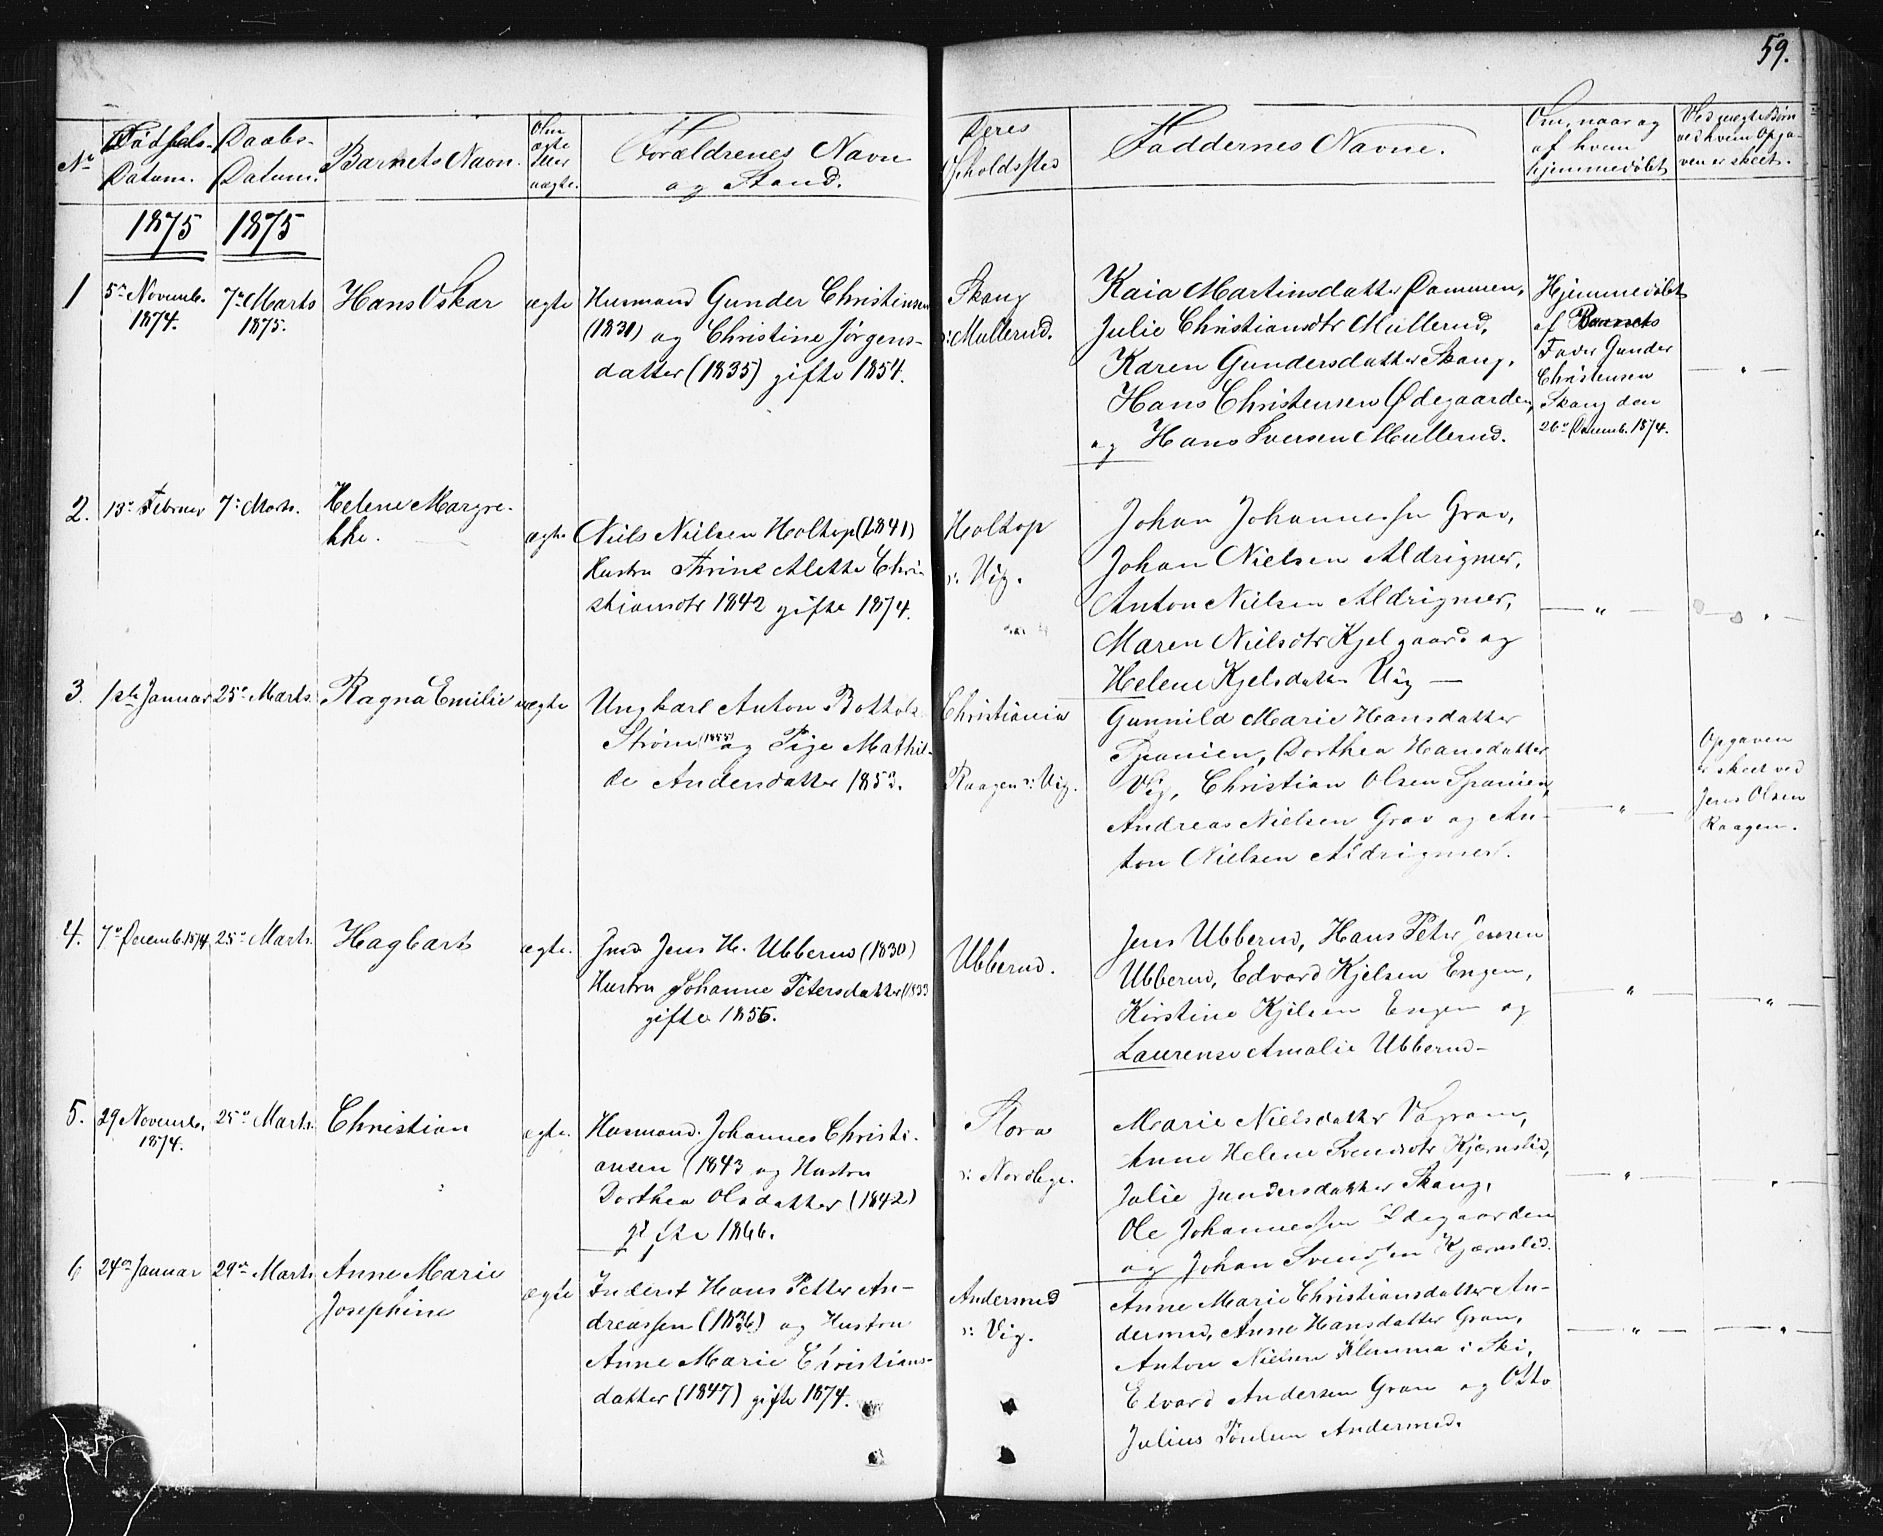 59.
No
Fødsels-
Datum.
Daabs-
Datum.
Barnets Navn.
Om
ægte
eller
uægte.
Forældrenes Navn
og Stand.
Deres
Opholdssted
Faddernes Navne.
Om, naar og
af hvem
hjemmedøbt
Ved uægte Børn
ved hvem Opga-
ven er skeet.
1875
1875
1
5te Novemb.
1874.
7de Marts
1875.
Hans Oskar
ægte
Husmand Gunder Christensen
(1831) og Christine Jørgens-
datter (1835) gifte 1854.
Skang
v: Mullerud.
Kaia Martinsdatter Dammen,
Julie Christiansdtr Mullerud,
Karen Gundersdatter Skang,
Hans Christensen Ødegaarden,
og Hans Iversen Mullerud.
Hjemmedøbt
af Barnets
Fader Gunder
Christensen
Skang den
26de Decemb. 1874.
2.
13de Februar
7de Marts.
Helene Margre-
the.
ægte
Niels Nielsen Holtop (1841)
Hustru Thrine Alette Chri-
stiansdtr 1842 gifte 1874.
Holtop
v: Vig.
Johan Johannessen Grav,
Johan Nielsen Aldrigmer,
Anton Nielsen Aldrigmer,
Maren Nielsdtr Kjelgaard og
Helene Kjelsdatter Vig —
3.
1ste Januar
25de Marts.
Ragna Emilie
uægte
Ungkarl Anton Bottols
Strøm (1855) og Pige Mathil-
de Andersdatter 1853.
Christiania
Raagen v: Vig.
Gunnild Marie Hansdatter
Spanien, Dorthea Hansdatter
Vig, Christian Olsen Spanien,
Andreas Nielsen Grav og An-
ton Nielsen Aldrigmer.
Opgaven
er skeet ved
Jens Olsen
Raagen.
4.
7de Decemb. 1874
25de Marts.
Hagbart
ægte.
Jens H. Ubberud (1830)
Hustru Johanne Petersdatter (1833
gifte 1855.
Ubberud.
Jens Ubberud, Hans Peter Jensen
Ubberud, Edvard Kjelsen Engen,
Kirstine Kjelsen Engen og
Laurense Amalie Ubberud —
5.
29 Novemb.
1874.
25de Marts.
Christian
ægte.
Husmand Johannes Christi-
ansen (1843 og Hustru
Dorthea Olsdatter (1842)
gifte 1866.
Flora
v: Nordbye.
Marie Nielsdatter Vagram,
Anne Helene Svendsdtr Kjærnslid,
Julie Gundersdatter Skang,
Ole Johannessen Ødegaarden
og Johan Svendsen Kjærnslid.
6
24de Januar
29de Marts
Anne Marie
Josephine
ægte
Inderst Hans Petter An-
dreassen (1836) og Hustru
Anne Marie Christians-
datter (1847) gifte 1874.
Andersrud
v: Vig.
Anne Marie Christiansdatter An-
dersrud, Anne Hansdatter Gran,
Anton Nielsen Klemma i Ski,
Edvard Andersen Gran og Otto
Julius Andersrud.